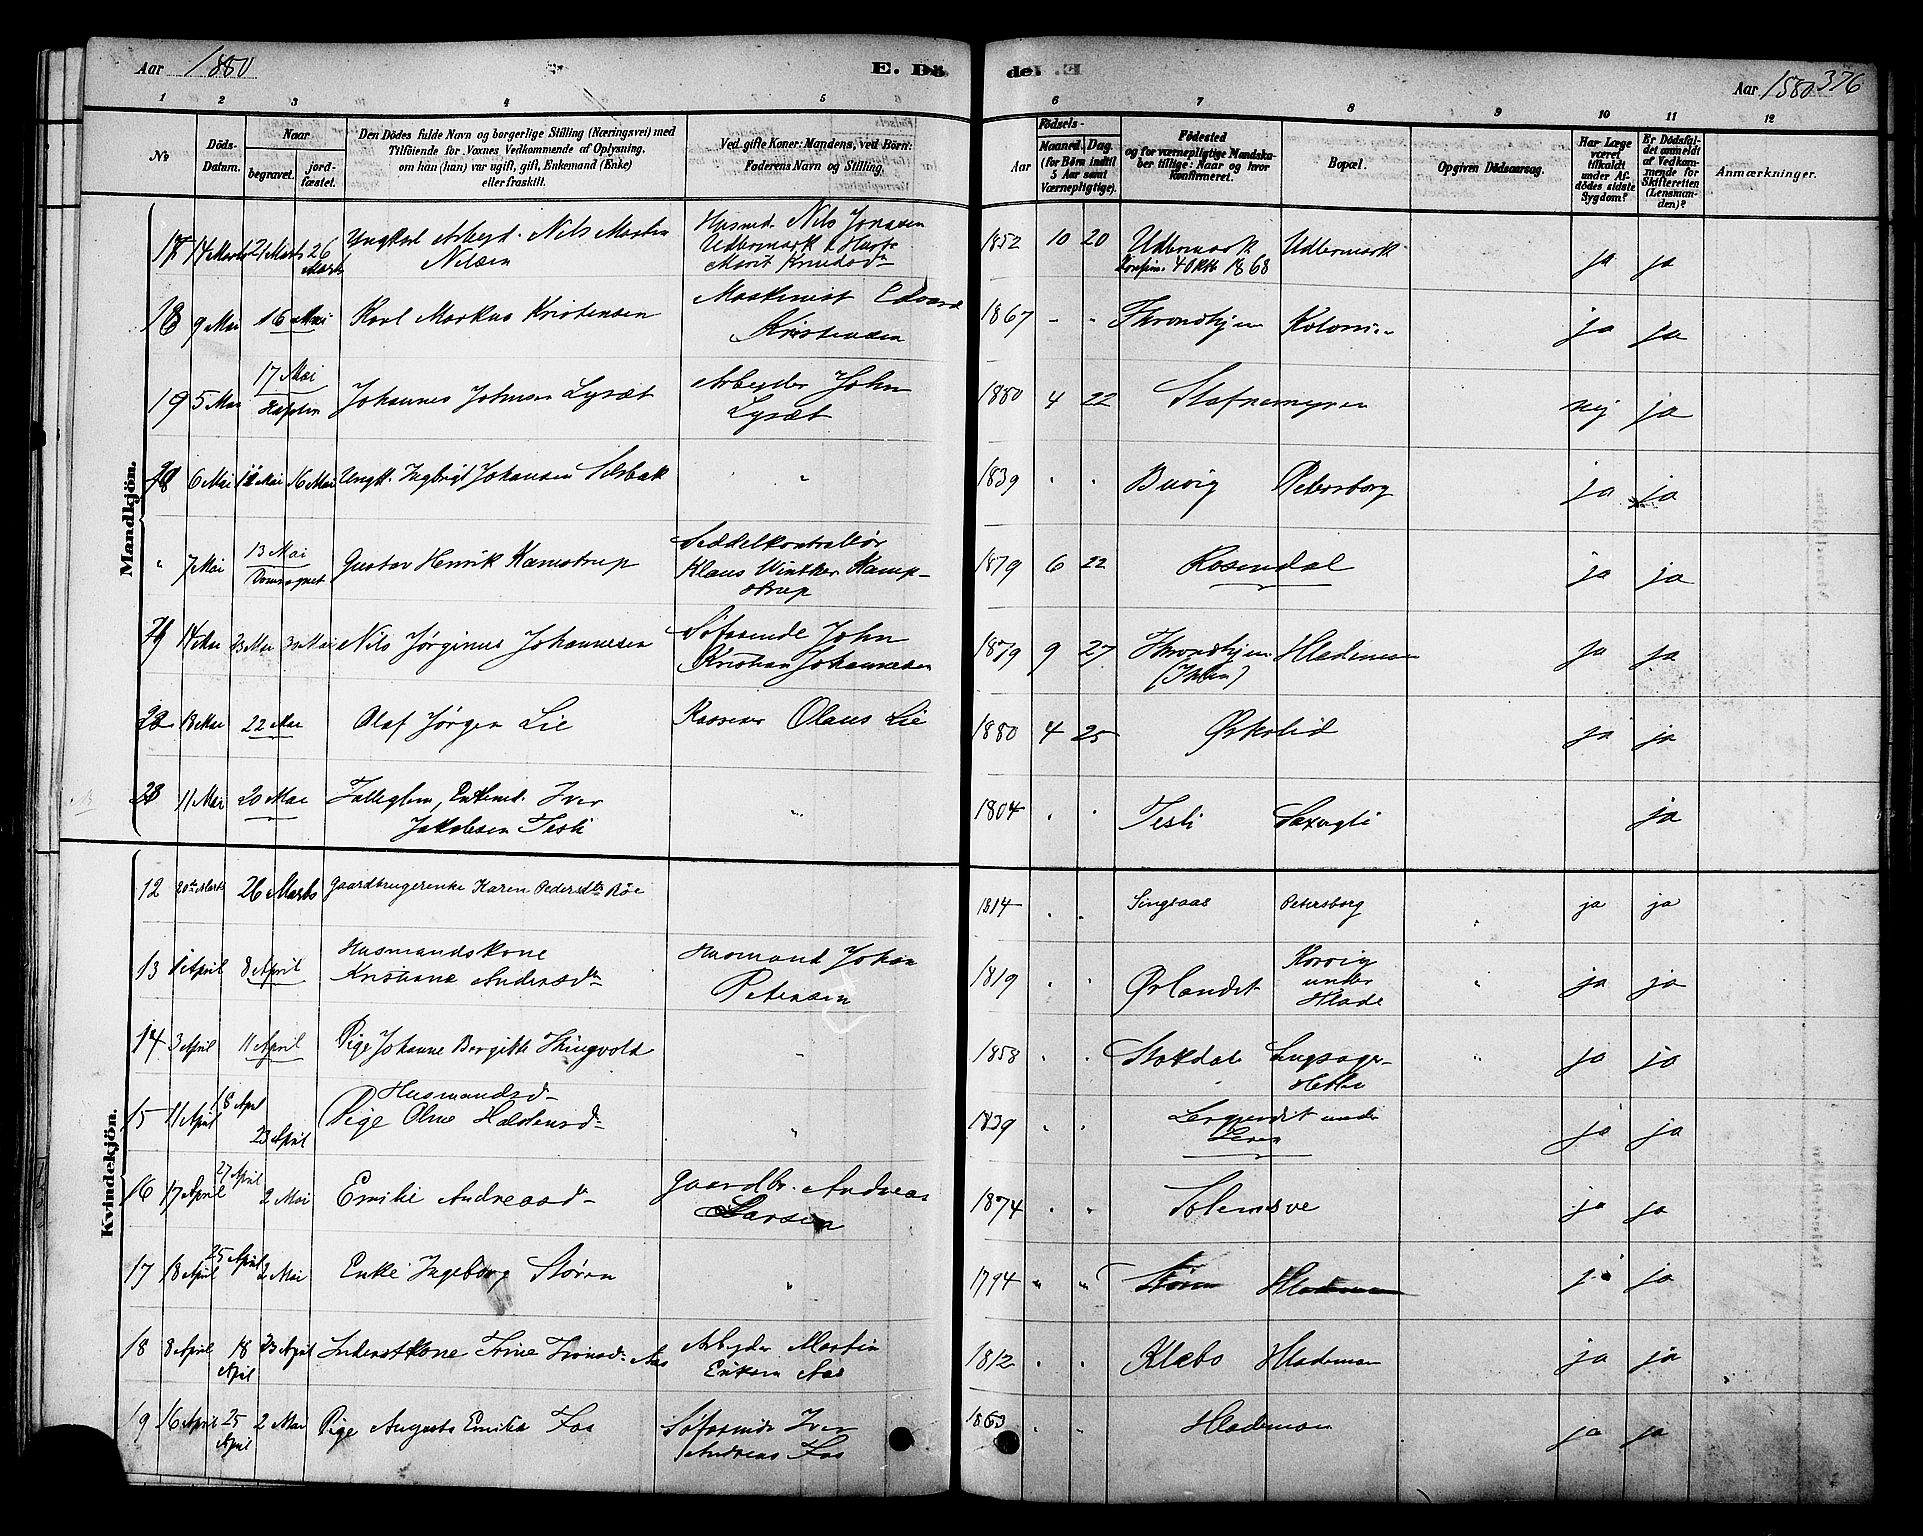 Aar 1880
E. Döde.
Aar 1880 376
1 2 3 4 5 6 7 8 9 10 11 12
No
Döds-Datum.
Naar
begravet. jordfæstet.
Den Dödes fulde Navn og borgerlige Stilling (Næringsvei) med
Tilföiende for Voxnes Vedkommende af Oplysning,
om hun (han) var ugift, gift, Enkemand (Enke)
eller fraskilt.
Ved gifte Koner: Mandens, ved Börn:
Faderens Navn og Stilling.
Födsels-
Aar
Maaned. Dag.
(for Börn indtil
5 Aar samt
Værnepligtige).
Födested
og for værnepligtige Mandskaber tillige: Naar og hvor
konfirmeret.
Bopæl.
Opgiven Dödsaarsag.
Har Læge
været
tilkaldt
under Afdödes sidste
Sygdom?
Er Dödsfaldet anmeldt
af Vedkommende for
Skifteretten
(Lensmanden)?
Anmærkninger.
Mandkjön.
17 17 Marts 21 Marts 26 Marts Ungkarl Arbejd. Nils Martin Nilsen Husmd. Nils Jonsen Udbermark & Hustr. Marit Knudsdr 1852 10 20 Udbermark Konfirm. 4 Oktb 1868 Udbermark ja ja
18 9 Mai 16 Mai Karl Markus Kristensen Maskinist Edvard Kristensen 1867 - " Throndhjem Kolonien ja ja
19 5 Mai 17 Mai Johannes Johnsen Lysæt Arbejder John Lysæt 1880 4 22 Stafnemyren nej ja
20 6 Mai 12 Mai 16 Mai Ungk. Ingbrigt Johansen Selsbak " 1839 " " Buvig Petersborg ja ja
" 7 Mai 13 Mai Domsognet Gustav Henrik Kamstrup Seddelkontrollør Klaus Winther Kampstrup 1879 6 22 Rosendal ja ja
21 14 Mai 23 Mai 30 Mai Nils Jørginus Johannesen Søfarende John Kristian Johannesen 1879 9 27 Throndhjem (Ihlen) Hlademoen ja ja
22 18 Mai 22 Mai Olaf Jørgen Lie Kasserer Olaus Lie 1880 4 25 Ørkelid ja ja
23 11 Mai 20 Mai Fattiglem, Enkemd. Iver Jakobsen Tesli " 1804 " " Tesli ja
Kvindekjön.
12 20de Marts 26 Marts Gaardbrugerenke Karen Pedersdtr Röe 1814 " " Singsaas Petersborg " ja ja
13 1 April 8 April Husmandskone Kristiane Andersdtr Husmand Johan Petersen 1819 " " Ørlandet Korsvig under Hlade " ja ja
14 3 April 11 April Pige Johanne Bergitte Thingvold " 1858 " " Stokdal " ja ja
15 11 April 18 April 23 April Husmandsd- Pige Oline Halstensdr " 1839 " " Lerquendet under Leren ja ja
16 17 April 27 April 2 Mai Emilie Andreasdr Gaardbr. Andreas Larsen 1874 " " Solemsve ja ja
17 18 April 25 April 2 Mai Enke Ingeborg Støren " 1794 " " Støren Hlademoen ja ja
18 8 April 18 April 23 April Inderstkone Trine Tronsdr Aas Arbejder Martin Eriksen Aas 1812 " " Klæbo Hlademoen ja ja
19 16 April 25 April 2 Mai Pige Augusta Emilie Fos Søfarende Iver Andreas Fos 1863 " " Hlademoen ja ja